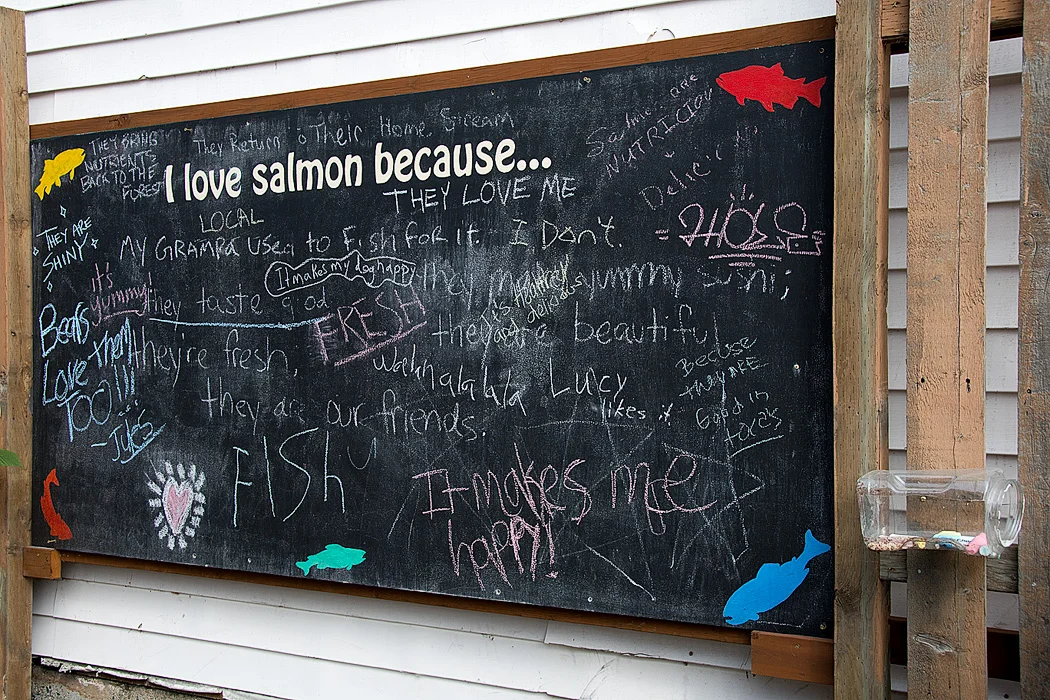 THEY BRING
NUTRIENTS
BACK TO THE
FOREST
They Return to Their Home Stream
Salmon are
NUTRICIOUS
I love salmon because...
THEY LOVE ME
LOCAL
THEY ARE
SHINY
MY GRAMPA used to Fish for it. I Don't.
It makes my dog happy
it's
yummy
they taste good
yummy sushi;
FRESH
they are beautiful
Bears
Love them
Too!!!
-Jules
they're fresh,
walahalalala
Lucy
likes it
Becuse
they ARE
Good in
tacos
they are our friends.
FISh
It makes me
happy!